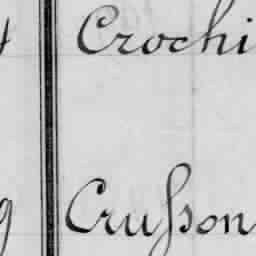 4 Crochi
9 Crusson